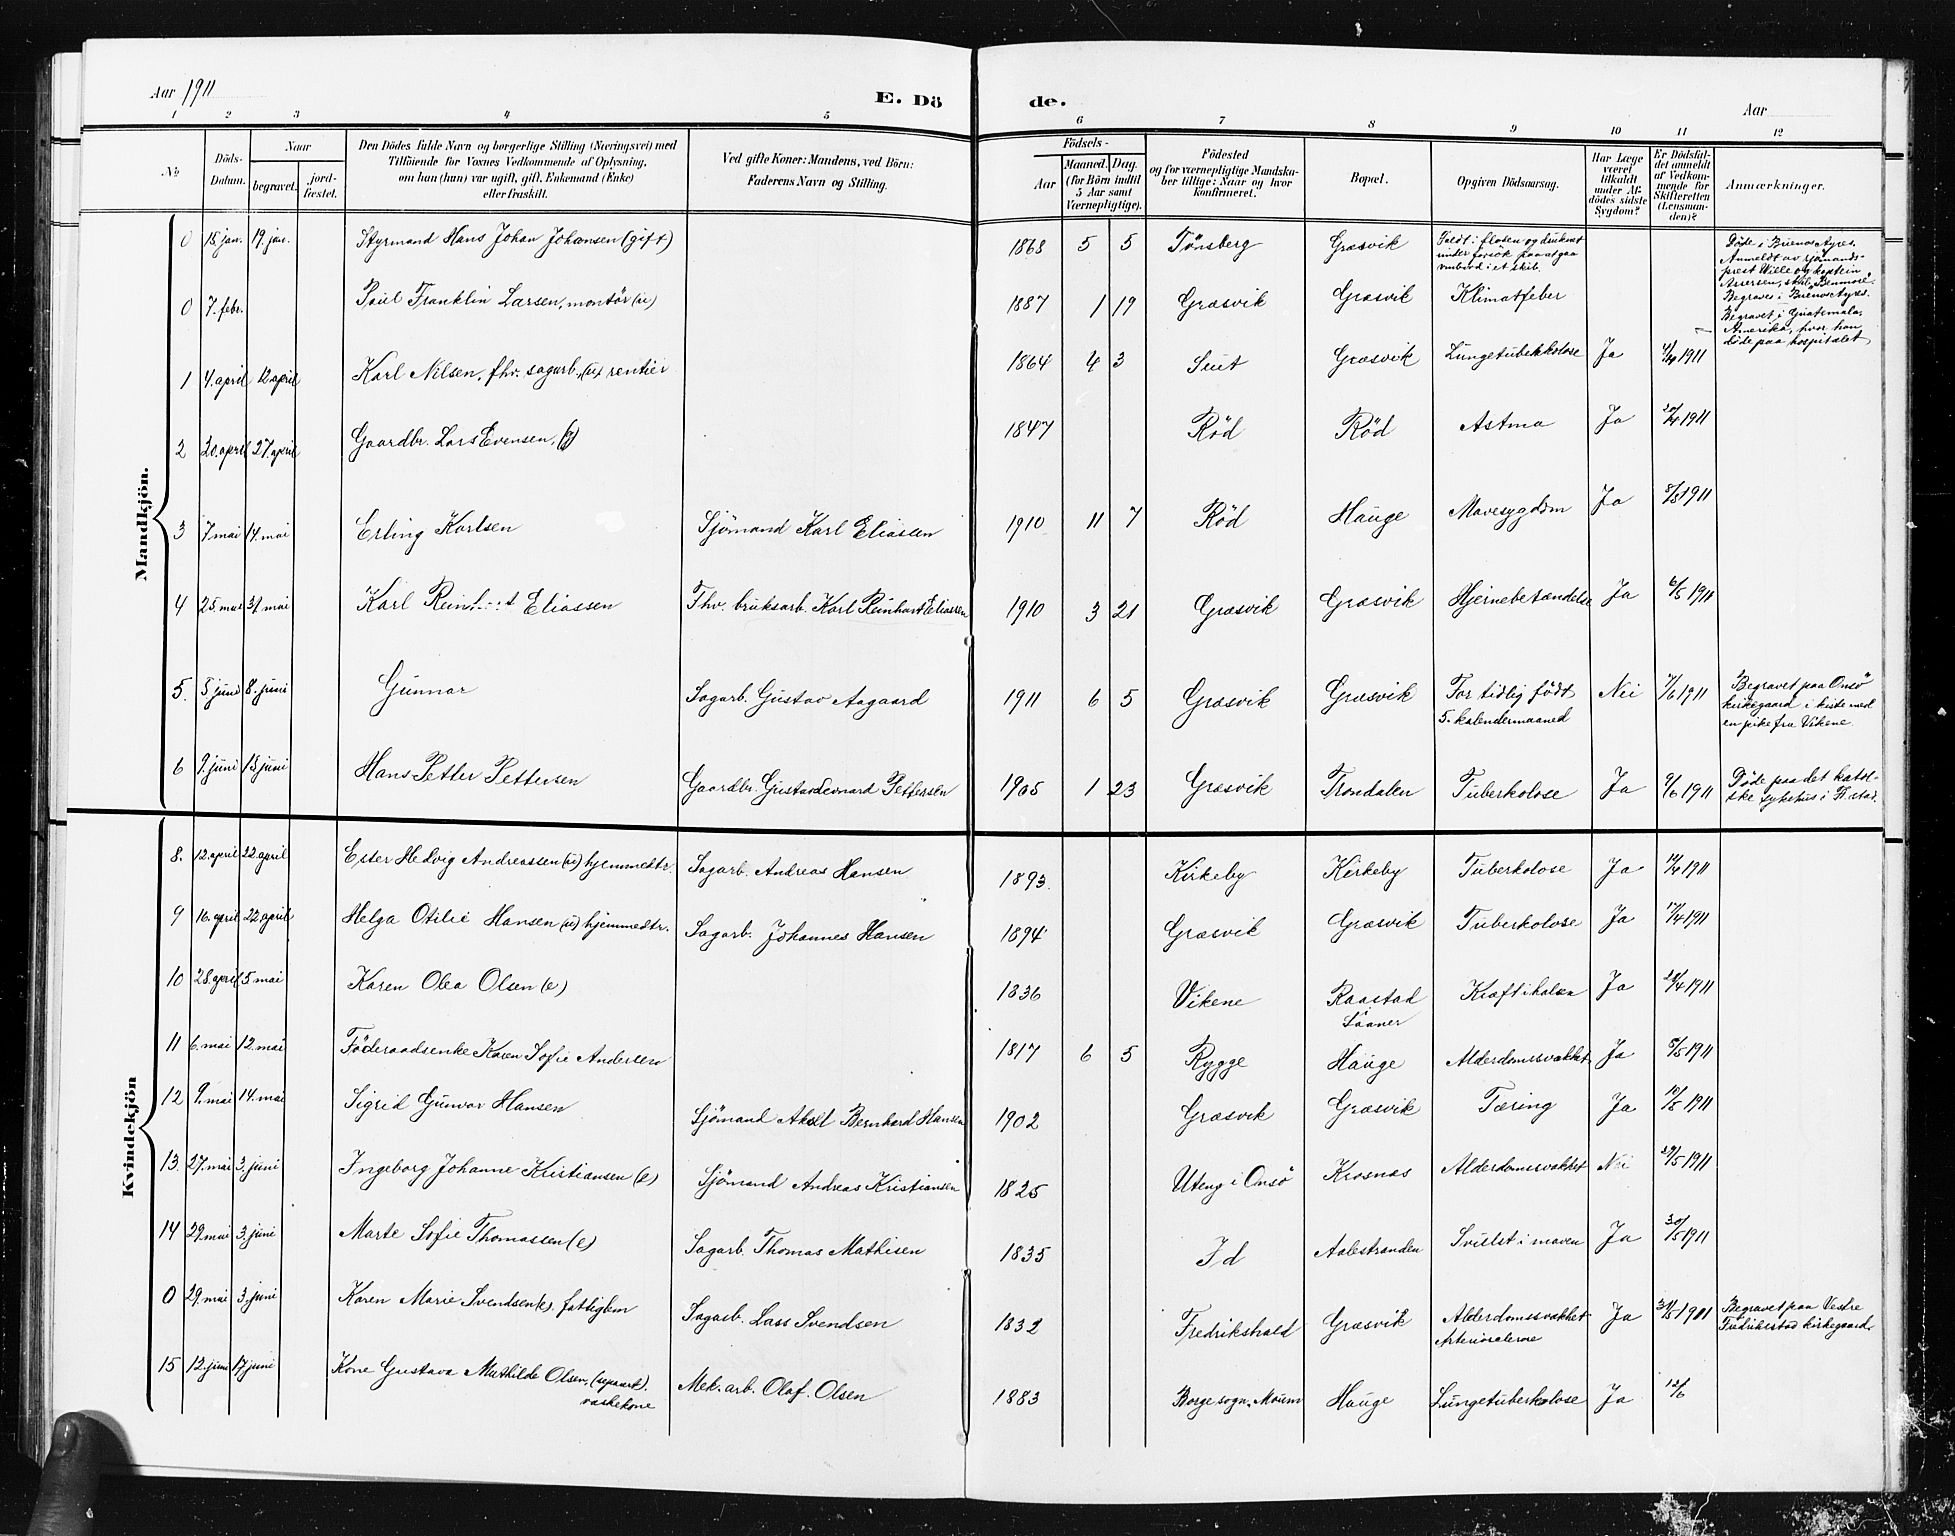 Aar 1911
E. Dö de.
Aar
1 2 3 4 5 6 7 8 9 10 11 12
No
Döds-Datum.
Naar
begravet.
jord-fæstet.
Den Dödes fulde Navn og borgerlige Stilling (Næringsvei) med
Tilföiende for Voxnes Vedkommende af Oplysning,
om han (hun) var ugift, gift, Enkemand (Enke)
eller fraskill.
Ved gifte Koner: Mandens, ved Börn:
Faderens Navn og Stilling.
Födsels-
Aar
Maaned. Dag.
(for Börn indtil
5 Aar samt
Værnepligtige).
Födested
og for værnepligtige Mandska-
ber tillige: Naar og hvor
konfirmeret.
Bopæl.
Opgiven Dödsaarsag.
Har Læge
været
tilkaldt
under Af-
dödes sidste
Sygdom?
Er Dödsfal-
det anmeldt
af Vedkom-
mende for
Skifteretten
(Lensman-
den)?
Anmærkninger.
Mandkjön.
0 18. jan. 19. jan. Styrmand Hans Johan Johansen (gift) 1868 5 5 Tönsberg Græsvik Faldt i floden og druknet
under forsök paa at gaa
ombord i et skib.
Döde i Buenos Ayres.
Anmeldt av sjömands-
prest Wille og kaptein
Assersen, skib „Benmore“
Begraves i Buenos Ayres.
0 7. febr. Paul Franklin Larsen, montör (u) 1887 1 19 Græsvik Græsvik Klimatfeber
Begravet i Guatemala,
Amerika, hvor han
döde paa hospitalet
1 4. april 12. april Karl Nilsen, fhv. sagarb., (u) rentier 1864 4 3 Græsvik Lungetuberkolose Ja 4/4 1911
2 20. april 27. april Gaardbr. Lars Evensen, (g) 1847 Röd Röd Astma Ja 1911
3 7. mai 14. mai Erling Karlsen Sjömand Karl Eliassen 1910 11 7 Röd Hauge Mavesygdom Ja 8/5 1911
4 25. mai 31. mai Karl Eliassen Fhv. bruksarb. Karl Reinhart Eliassen 1910 3 21 Græsvik Græsvik Hjernebetændelse Ja 1911
5. 5. juni 8. juni Gunnar Sagarb. Gustav Aagaard 1911 6 5 Græsvik Græsvik For tidlig födt
5. kalendermaaned
Nei 7/6 1911 Begravet paa Onsö
kirkegaard i kiste med
en pike fra Vikene.
6 9. juni 15. juni Hans Petter Pettersen Gaardbr. Gustav Leonard Pettersen 1905 1 23 Græsvik Trondalen Tuberkolose Ja 9/6 1911 Döde paa det katol-
ske sykehus i Fr.stad.
Kvindekjön
8. 12. april 22. april Ester Hedvig Andreassen (u) hjemmedtr. Sagarb. Andreas Hansen 1893. Kirkeby Kirkeby Tuberkolose Ja 1911
9 16. april 22. april Helga Otilie Hansen (u) hjemmedtr. Sagarb. Johannes Hansen 1894 Græsvik Græsvik Tuberkolose Ja 17/4 1911
10 28. april 5. mai Karen Olea Olsen (e) 1836 Vikene Raastad
Kræft i halsen Ja 28/4 1911
11 6. mai 12. mai Föderaadsenke Karen Sofie Andersen 1817 6 5 Rygge Hauge Alderdomssvakhet Ja 8/5 1911
12 9. mai 14. mai Sigrid Gunvor Hansen Sjömand Bernhard Hansen 1902 Græsvik Græsvik Tæring Ja 10/5 1911
13. 27. mai 3. juni Ingeborg Johanne Kristiansen (e) Sjömand Andreas Kristiansen 1825 Uteng i Onsö Krosnæs Alderdomssvakhet Nei 29/5 1911
14 29. mai 3. juni Marte Sofie Thomassen (e) Sagarb. Thomas Mathisen 1835 Id Aalestranden Svulst i maven Ja 30/5 1911
0 29. mai 3. juni Karen Marie Svendsen (e). fattiglem Sagarb. Lars Svendsen 1832 Fredrikshald Græsvik Alderdomssvakhet
Arteriosclerose
Ja 31/5 1911 Begravet paa Vestre
Fredrikstad kirkegaard.
15 12. juni 17. juni Kone Gustava Mathilde Olsen, (separert).
vaskekone
Mek. arb. Olaf Olsen 1883 Borge sogn. Moum Hauge Lungetuberkolose Ja 12/6